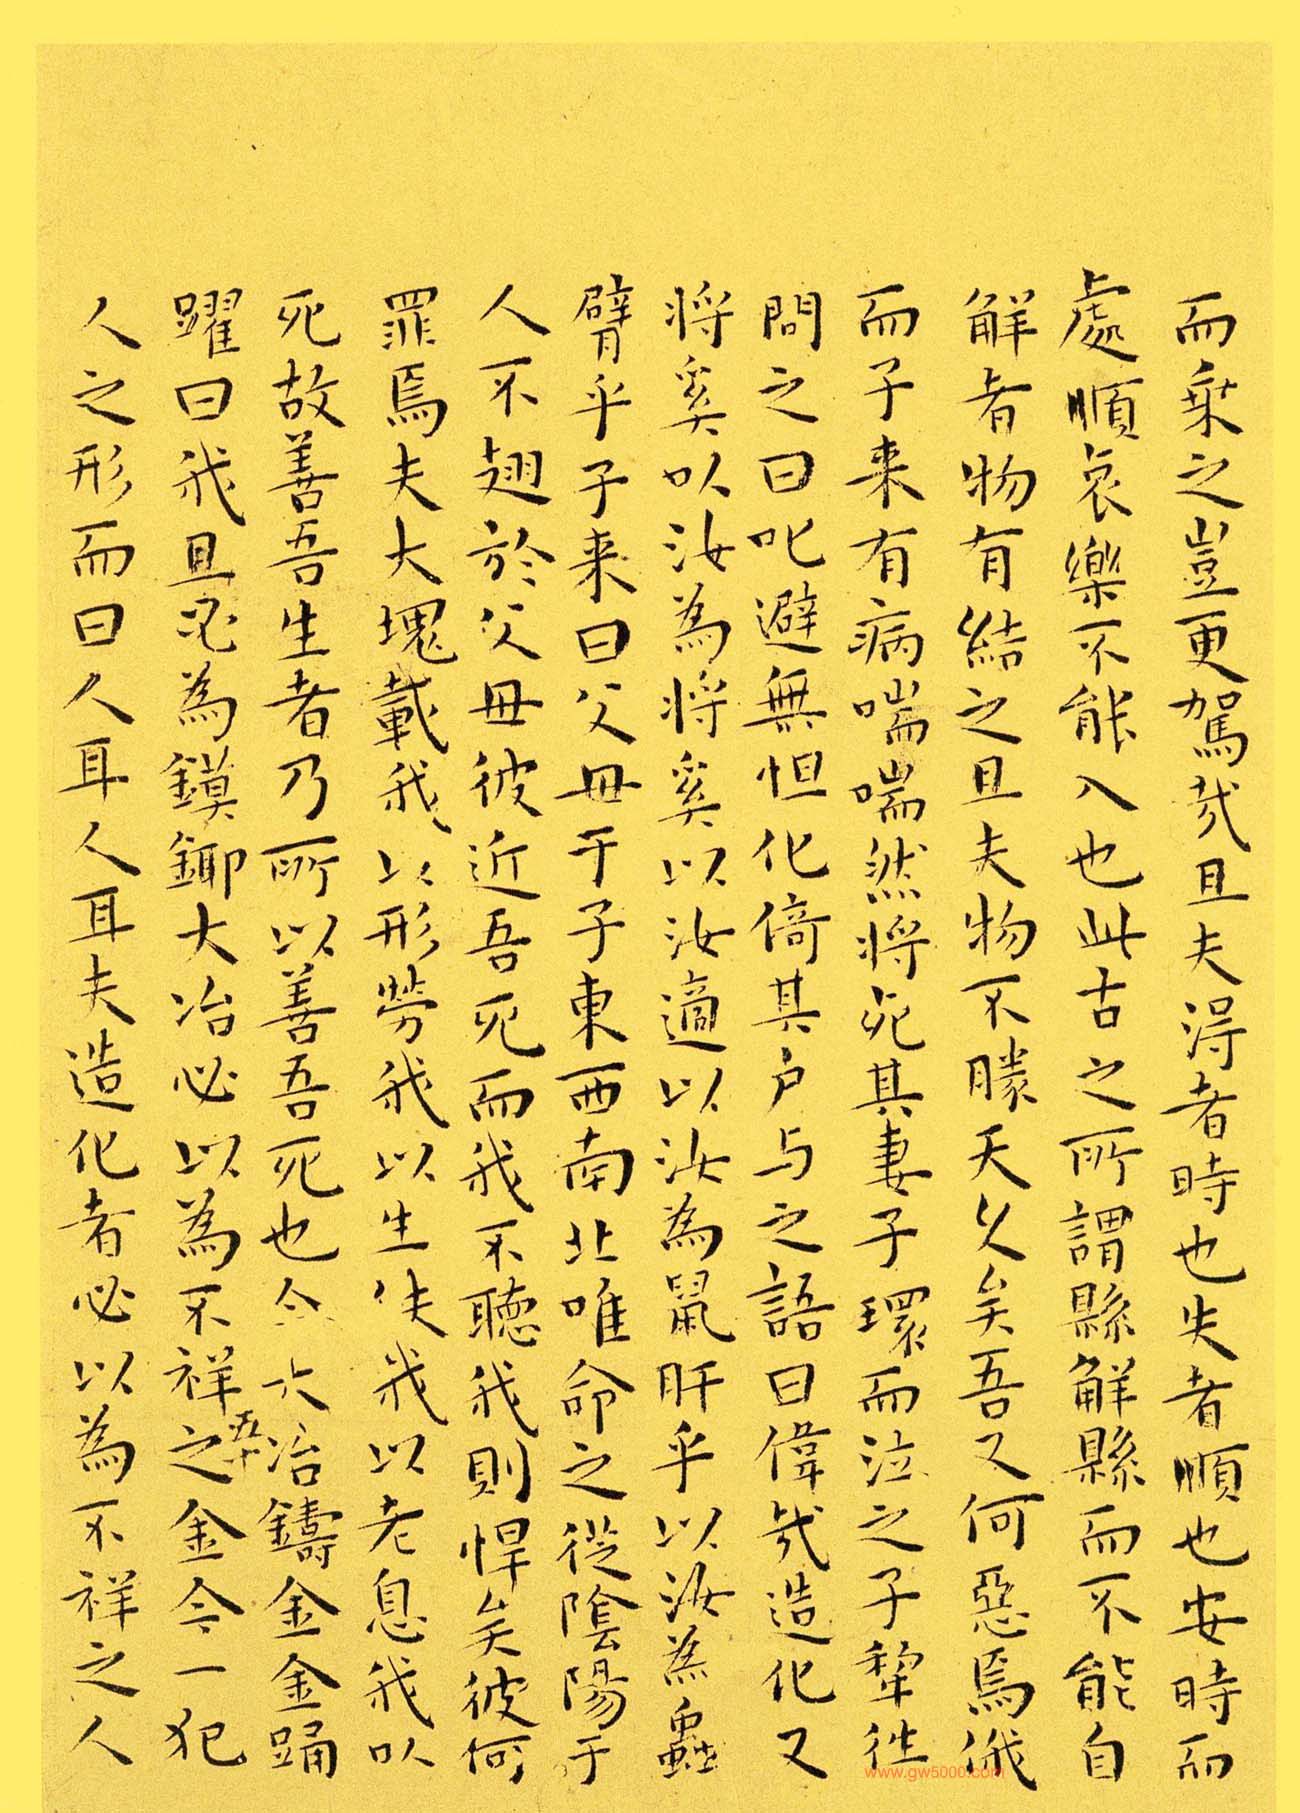 而乗之豈更駕哉且夫淂者時也失者順也安時而
處順哀樂不能入也此古之所謂縣解縣而不能自
解者物有結之且夫物不勝天久矣吾又何惡焉俄
而子来有病喘喘然將死其妻子環而泣之子犂往
問之曰叱避無怛化倚其户与之語曰偉哉造化又
將奚以汝為將奚以汝適以汝為鼠肝乎以汝為蟲
臂乎子来曰父母于子東西南北唯命之從陰陽于
人不翅於父母彼近吾死而我不聽我則悍矣彼何
罪焉夫大塊載我以形勞我以生佚我以老息我以
死故善吾生者乃所以善吾死也今大冶鑄金金踊
躍曰我且必為鏌鋣大冶必以為不祥之金今一犯
人之形而曰人耳人耳夫造化者必以為不祥之人
五十
www.gw5000.com